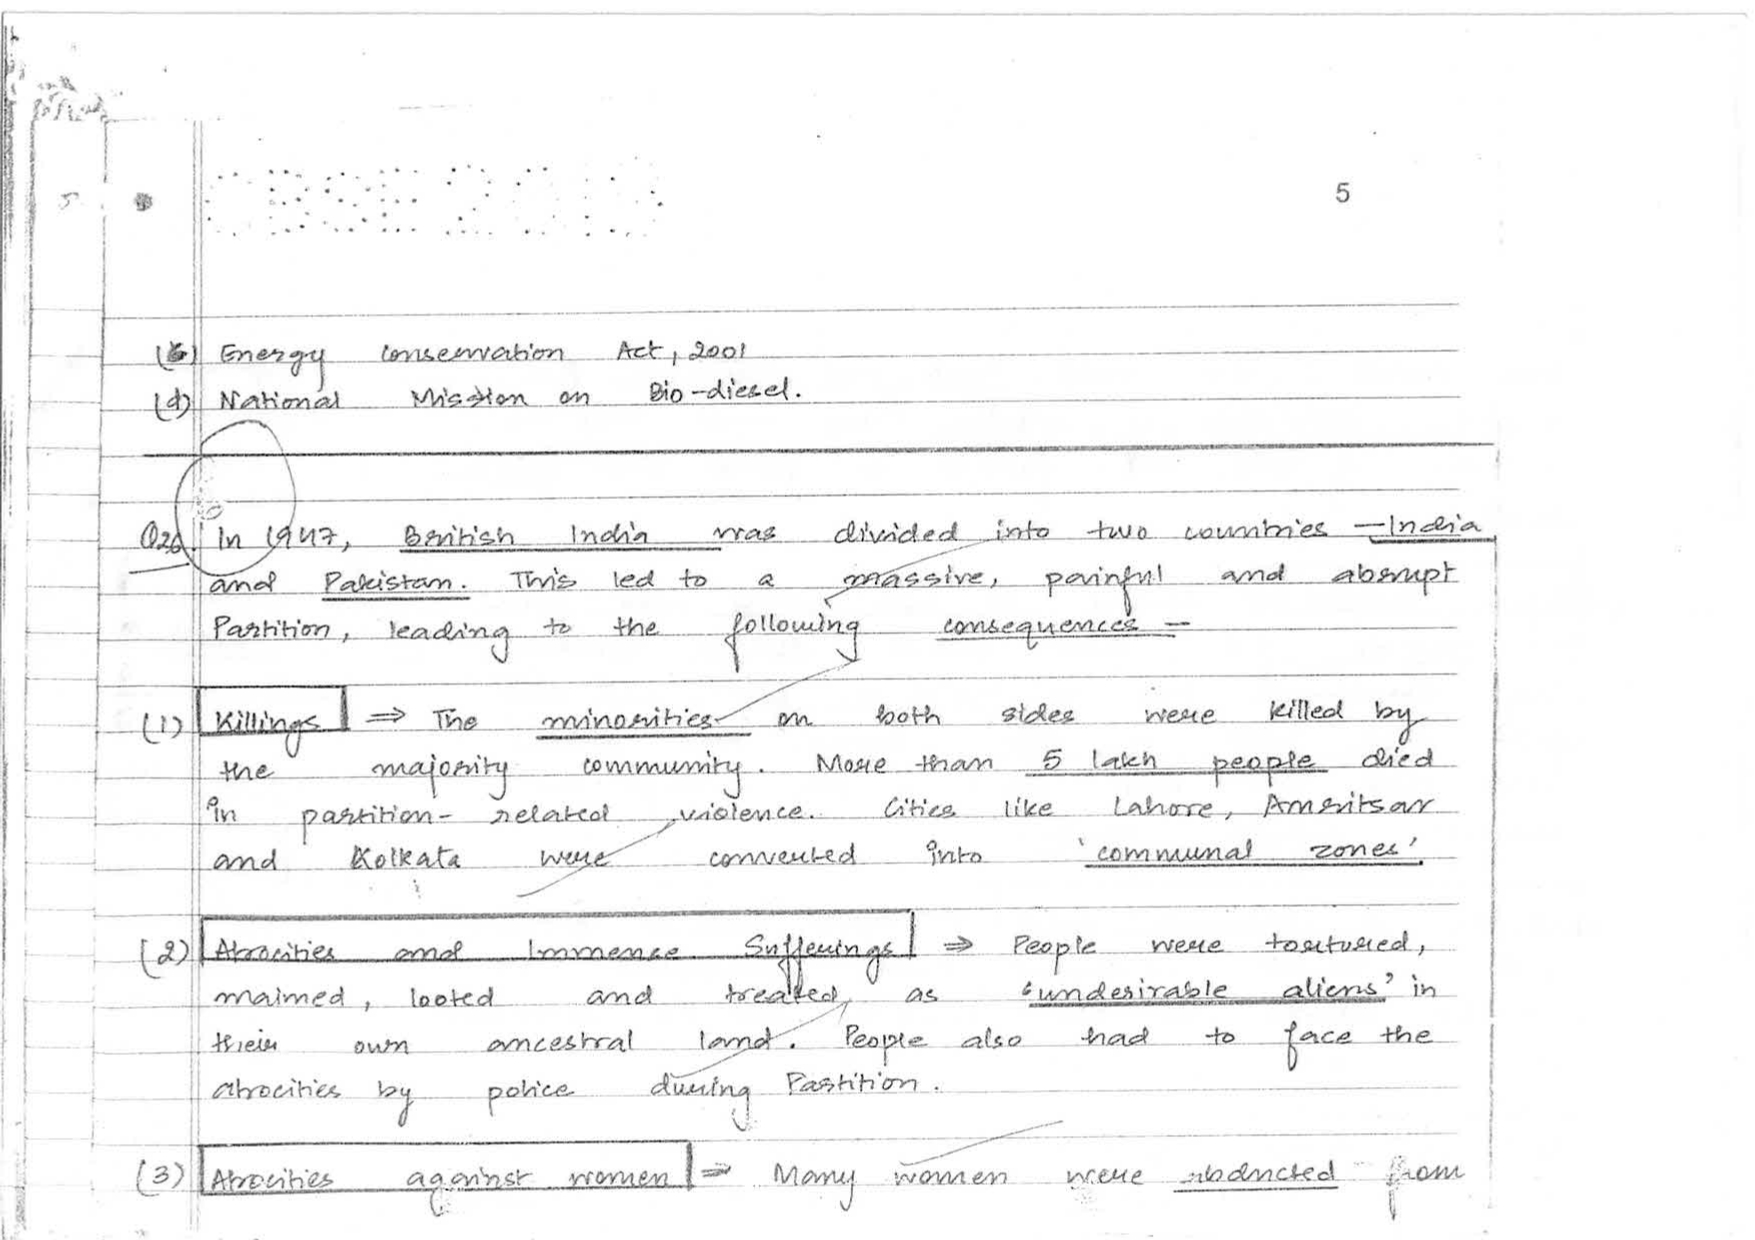 CBSE 2018
5
(c) Energy Conservation Act, 2001
(d) National Mission on Bio-diesel.
Q26. In 1947, British India was divided into two countries — India
and Pakistan. This led to a massive, painful and abrupt
Partition, leading to the following consequences —
(1) Killings ⇒ The minorities on both sides were killed by
the majority community. More than 5 lakh people died
in partition-related violence. Cities like Lahore, Amritsar
and Kolkata were converted into 'communal zones'.
(2) Atrocities and Immense Sufferings ⇒ People were tortured,
maimed, looted and treated as 'undesirable aliens' in
their own ancestral land. People also had to face the
atrocities by police during Partition.
(3) Atrocities against women ⇒ Many women were abducted from